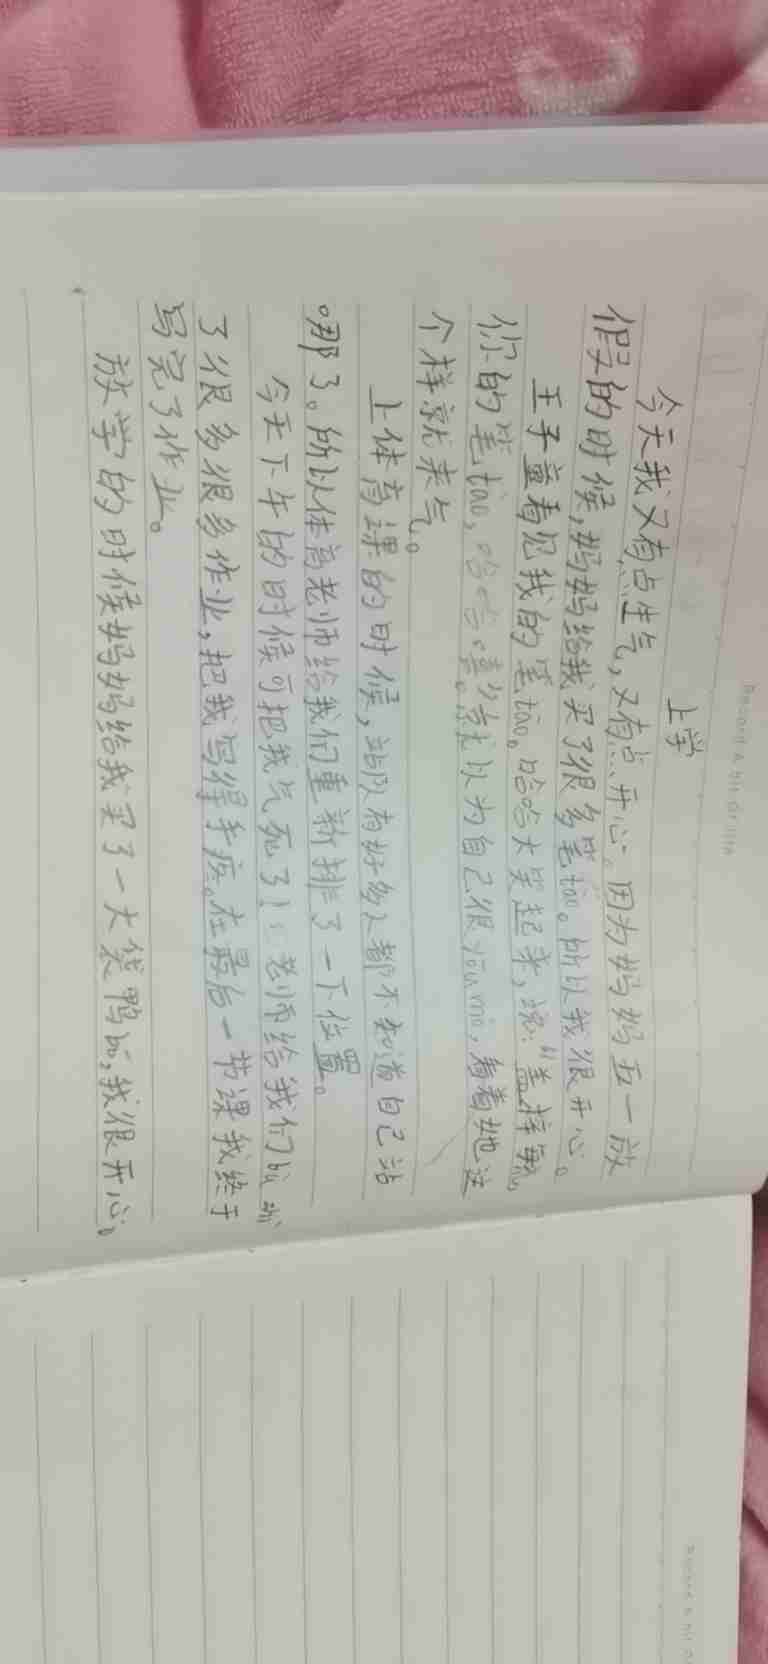 Record A bit of life
上学
今天我又有点生气,又有点开心。因为妈妈五一放
假的时候,妈妈给我买了很多笔tào。所以我很开心。
王子童看见我的笔tào。哈哈大笑起来,说:“盖
你的笔tào,哈哈嘻”就以为自己很yōu mò,看着她这
个样就来气。
上体育课的时候,站队有好多人都不知道自己站
哪了。所以体育老师给我们重新排了一下位置。
今天下午的时候可把我气死了!老师给我们
了很多很多作业,把我写得手疼。在最后一节课我终于
写完了作业。
放学的时候妈妈给我买了一大袋鸭bó,我很开心。